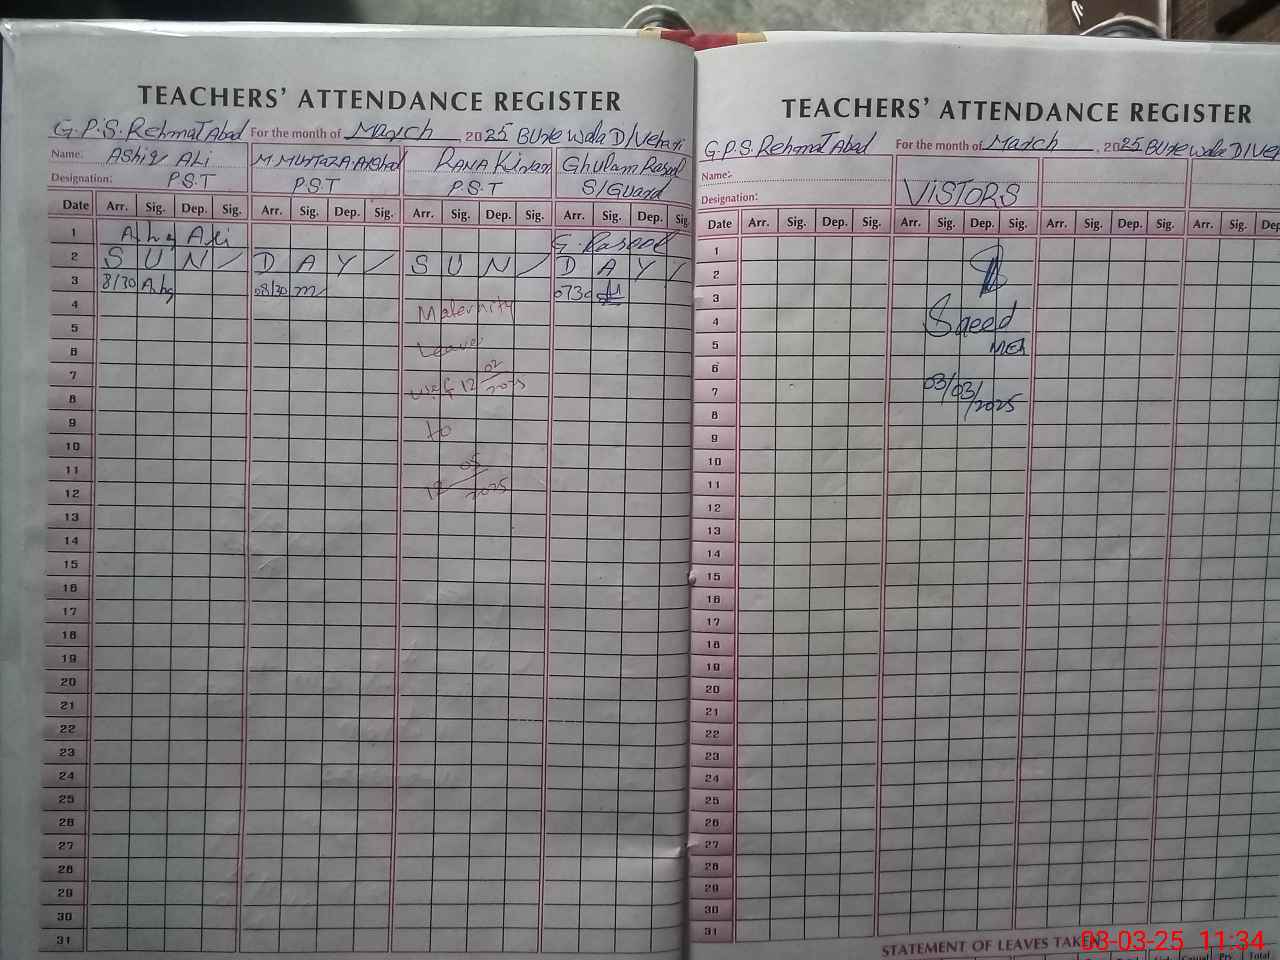 TEACHERS' ATTENDANCE REGISTER
G.P.S. Rehmat Abad For the month of March 2025 Burewala D/Vehari
Name: Ashiq Ali M. Murtaza Arshad Rana Kiran Ghulam Rasool
Designation: P.S.T P.S.T P.S.T S/Guard
Date Arr. Sig. Dep. Sig. Arr. Sig. Dep. Sig. Arr. Sig. Dep. Sig. Arr. Sig. Dep. Sig.
1 Ashq Ali G. Rasool
2 S U N / D A Y / S U N / D A Y /
3 8/30 Ashq 08/30 0730
4 Maternity
5
6 Leave
7 w.e.f 12/02/2025
8
9 to
10
11
12 12/05/2025
13
14
15
16
17
18
19
20
21
22
23
24
25
26
27
28
29
30
31
TEACHERS' ATTENDANCE REGISTER
G.P.S. Rehmat Abad For the month of March, 2025 Burewala D/Veh
Name:
Designation: VISTORS
Date Arr. Sig. Dep. Sig. Arr. Sig. Dep. Sig. Arr. Sig. Dep. Sig. Arr. Sig. Dep
1
2
3
4 Saeed
5 MEA
6
7 03/03/2025
8
9
10
11
12
13
14
15
16
17
18
19
20
21
22
23
24
25
26
27
28
29
30
31
STATEMENT OF LEAVES TAKEN
03-03-25 11:34